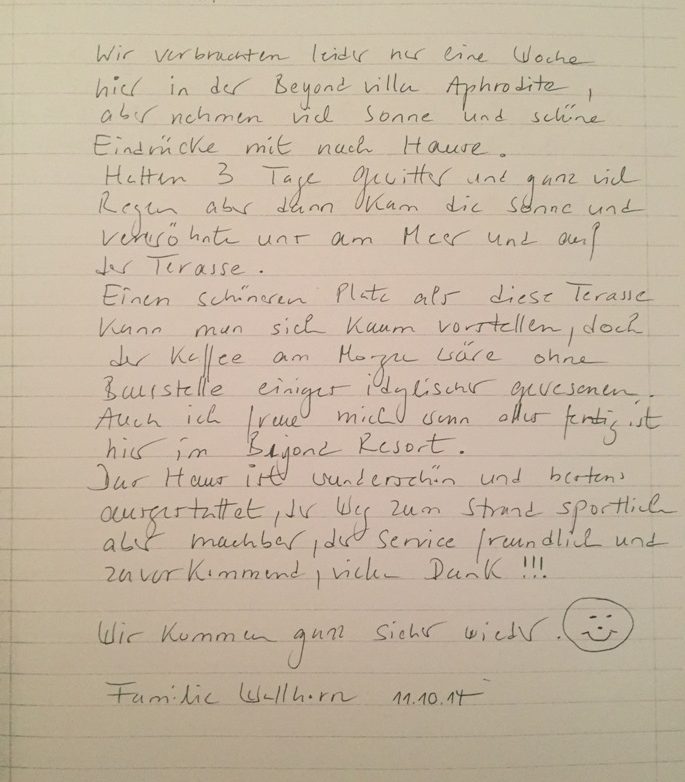 Wir verbrachten leider nur eine Woche
hier in der Beyond villa Aphrodite,
aber nehmen viel Sonne und schöne
Eindrücke mit nach Hause.
Hatten 3 Tage Gewitter und ganz viel
Regen aber dann kam die Sonne und
versöhnte uns am Meer und auf
der Terasse.
Einen schöneren Platz als diese Terasse
kann man sich kaum vorstellen, doch
der Kaffee am Morgen wäre ohne
Baustelle einiges idylischer gewesenen.
Auch ich freue mich wenn alles fertig ist
hier im Beyond Resort.
Das Haus ist wunderschön und bestens
ausgestattet, der Weg zum Strand sportlich
aber machbar, der Service freundlich und
zuvorkommend, vielen Dank !!!
Wir kommen ganz sicher wieder.
Familie 11.10.14